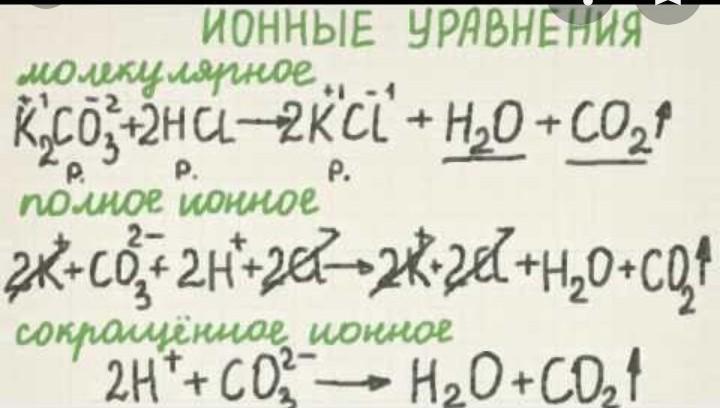 ИОННЫЕ УРАВНЕНИЯ
молекулярное
K₂⁺¹CO₃⁻² + 2HCl → 2K⁺¹Cl⁻¹ + H₂O + CO₂↑
р. р. р.
полное ионное
2K⁺ + CO₃²⁻ + 2H⁺ + 2Cl⁻ → 2K⁺ + 2Cl⁻ + H₂O + CO₂↑
сокращённое ионное
2H⁺ + CO₃²⁻ → H₂O + CO₂↑